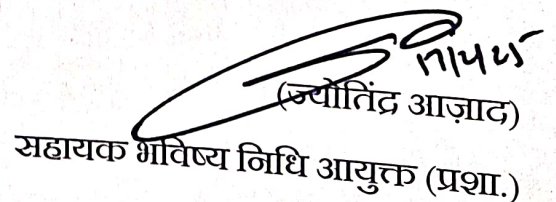 17/4/25
(ज्योतिंद्र आज़ाद)
सहायक भविष्य निधि आयुक्त (प्रशा.)